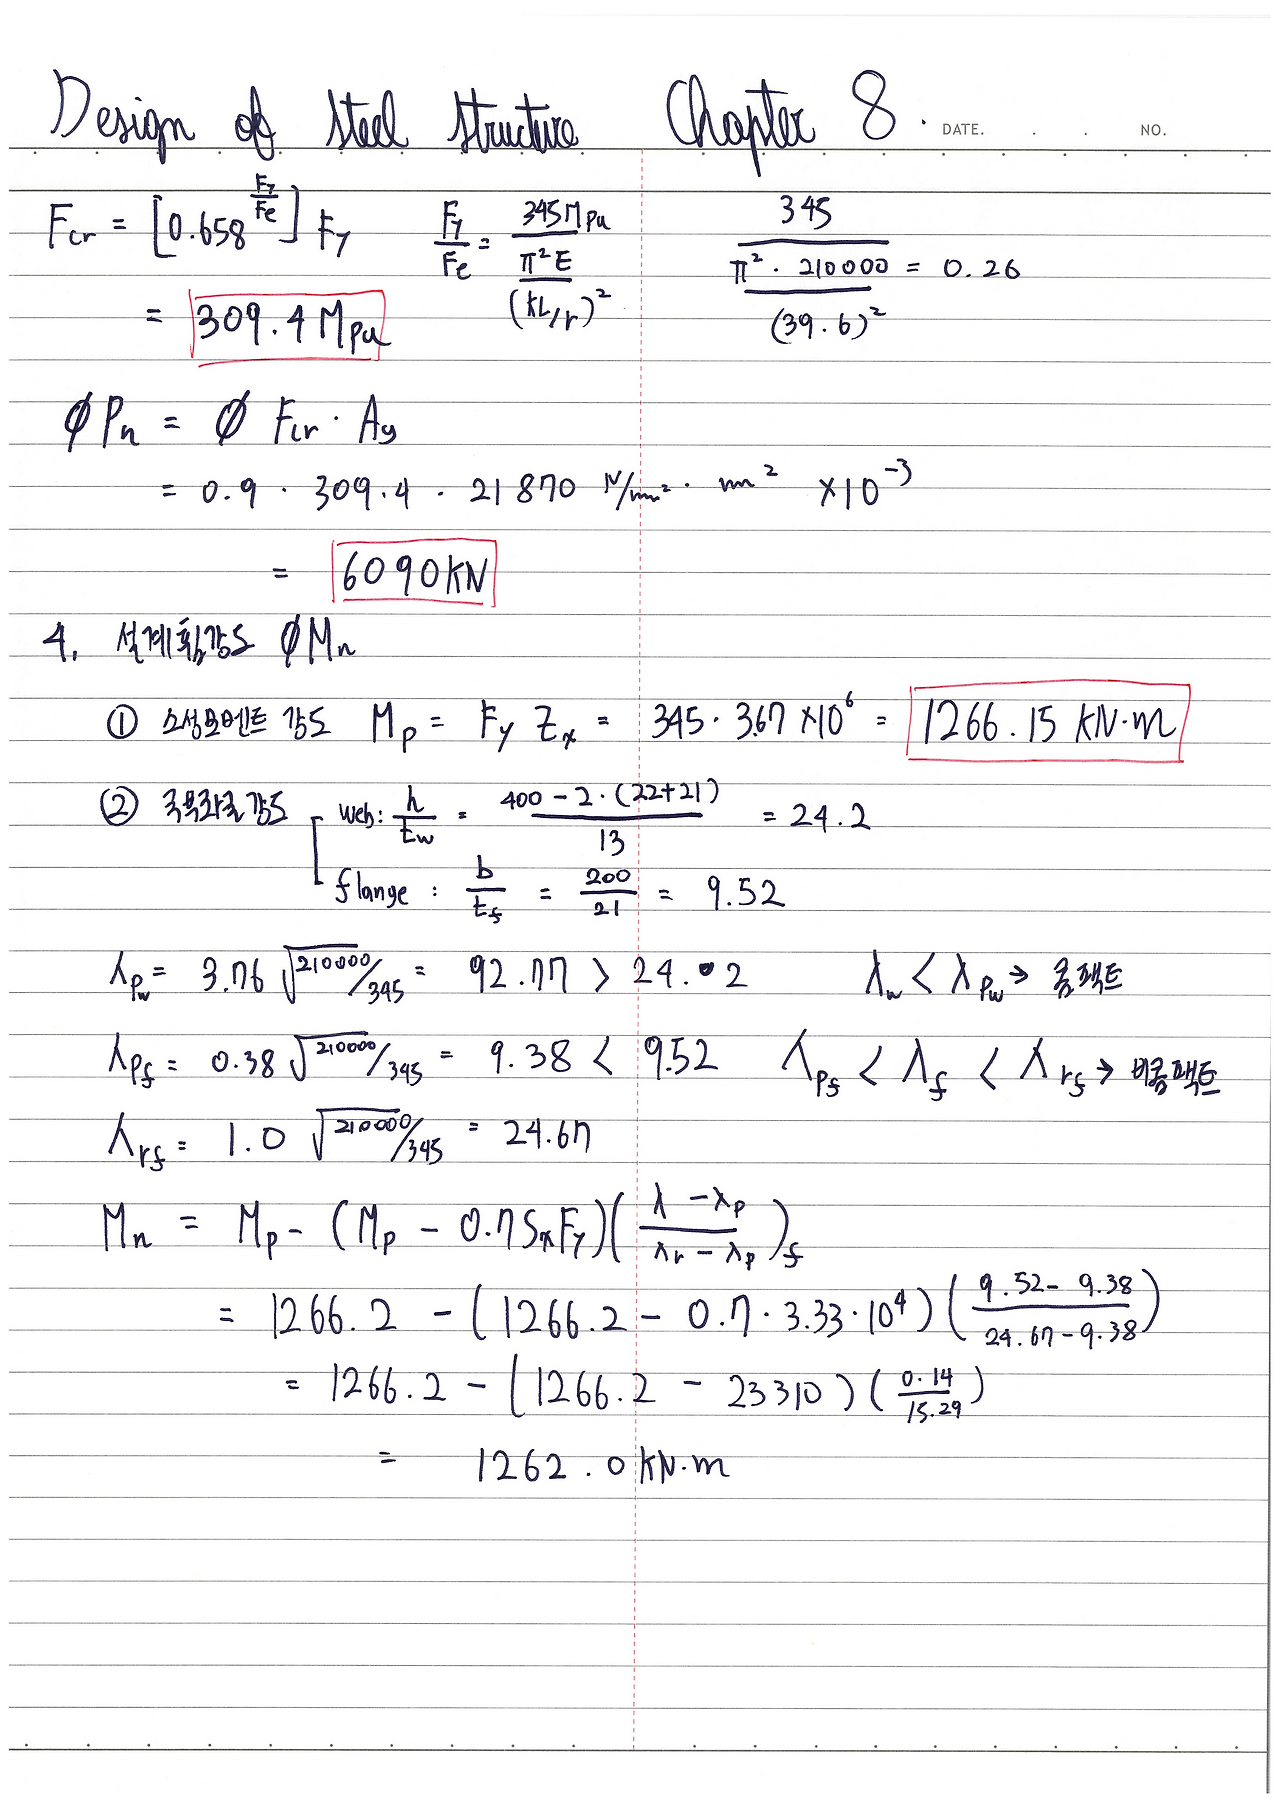 Design of Steel Structure Chapter 8. DATE. . . NO.
Fcr = [0.658^(Fy/Fe)] Fy Fy/Fe = 345Mpa / (π²E / (KL/r)²) 345 / (π² · 210000 / (39.6)²) = 0.26
= 309.4 Mpa
ØPn = Ø Fcr · Ag
= 0.9 · 309.4 · 21870 N/mm² · mm² ×10⁻³
= 6090KN
4. 설계휨강도 ØMn
① 소성모멘트 강도 Mp = Fy Zx = 345 · 3.67 ×10⁶ = 1266.15 KN·m
② 국부좌굴강도 web: h/tw = (400 - 2·(22+21)) / 13 = 24.2
flange : b/tf = 200/21 = 9.52
λpw = 3.76 √210000/345 = 92.77 > 24.2 λw < λpw → 콤팩트
λpf = 0.38 √210000/345 = 9.38 < 9.52 λpf < λf < λrf → 비콤팩트
λrf = 1.0 √210000/345 = 24.67
Mn = Mp - (Mp - 0.7SxFy)((λ - λp)/(λr - λp))f
= 1266.2 - (1266.2 - 0.7 · 3.33 · 10⁴)((9.52 - 9.38)/(24.67 - 9.38))
= 1266.2 - (1266.2 - 23310)(0.14/15.29)
= 1262.0 kN·m